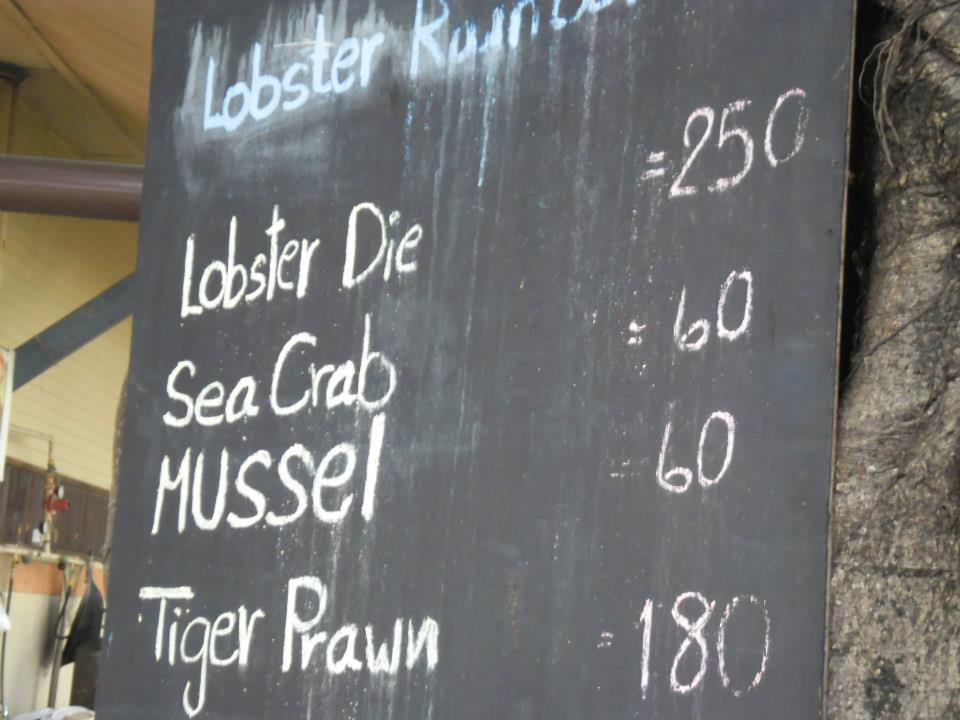 Lobster
Lobster Die = 250
Sea Crab = 60
MUSSel = 60
Tiger Prawn = 180